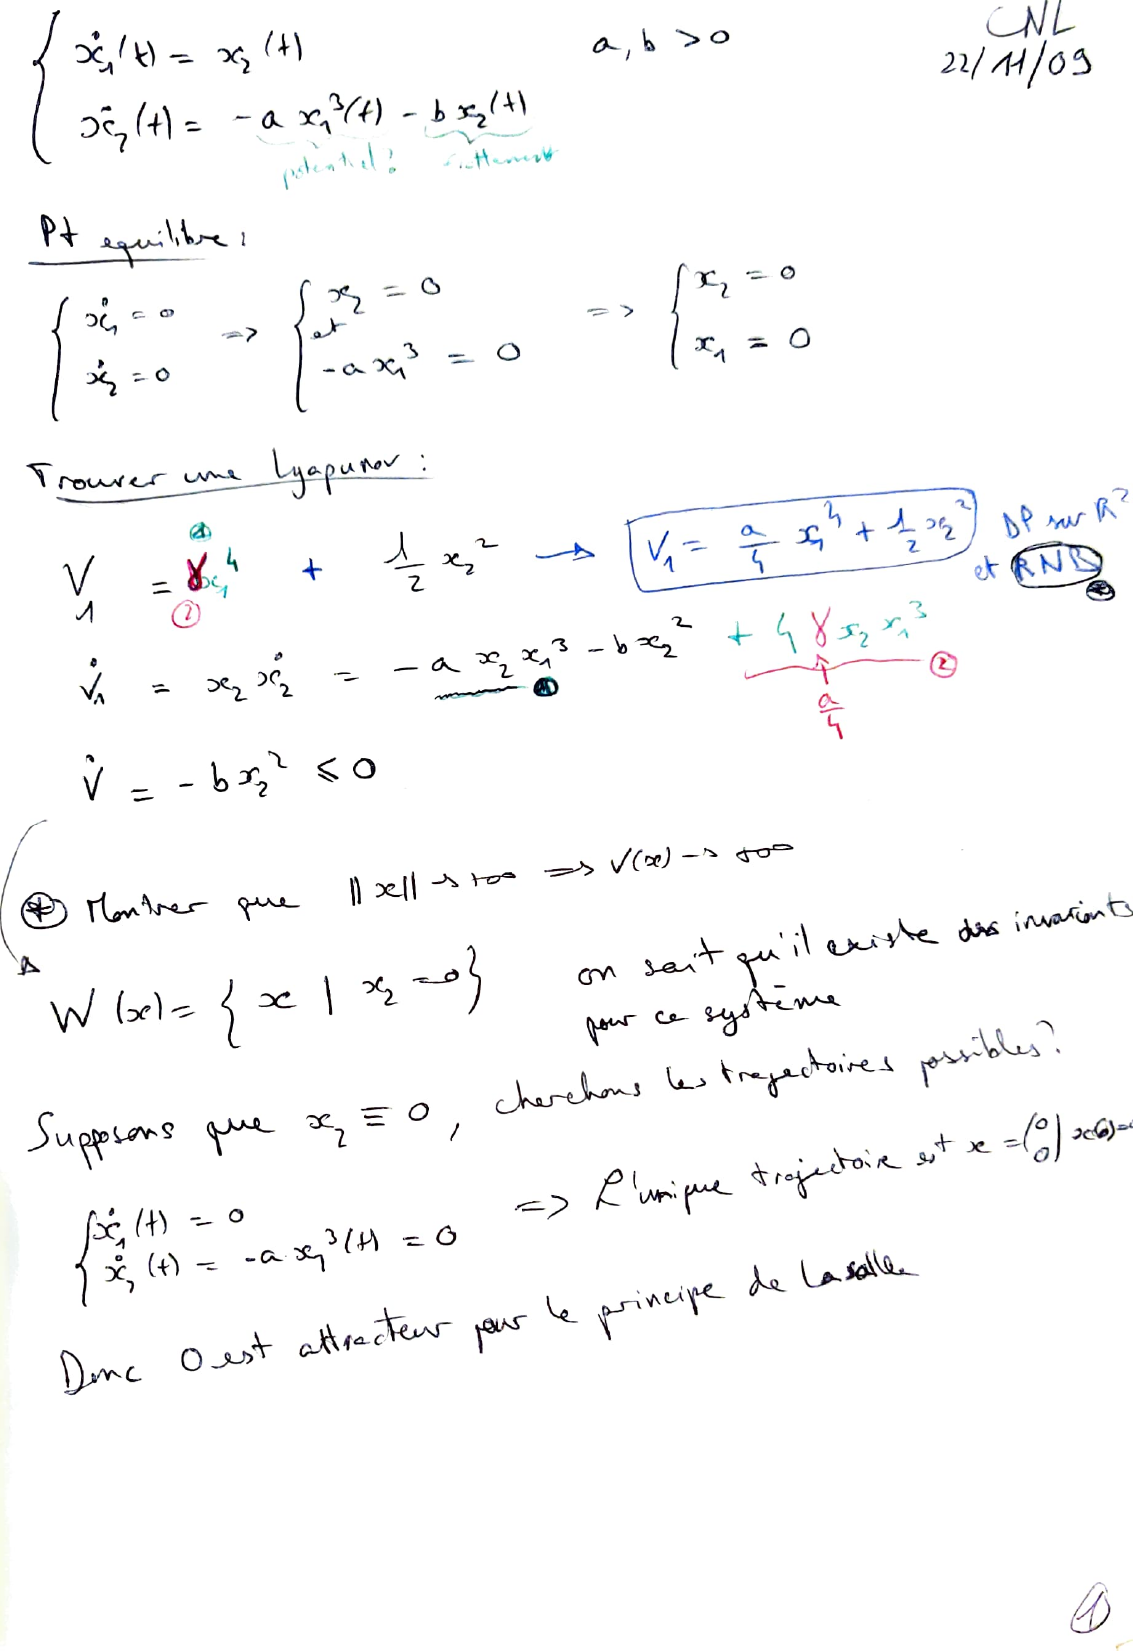 CNL
22/11/09
{ ẋ₁(t) = x₂(t)      a, b > 0
{ ẋ₂(t) = -a x₁³(t) - b x₂(t)
potentiel?   frottements
Pt equilibre :
{ ẋ₁ = 0   => { x₂ = 0   => { x₂ = 0
et
{ ẋ₂ = 0      { -a x₁³ = 0      { x₁ = 0
Trouver une Lyapunov :
V₁ = γx₁⁴ + 1/2 x₂² → V₁ = a/4 x₁⁴ + 1/2 x₂²   DP sur R²
et RNB
V̇₁ = x₂ ẋ₂ = -a x₂ x₁³ - b x₂² + 4 γ x₂ x₁³ ②
① a/4
V̇ = -b x₂² ≤ 0
⊛ Montrer que ||x|| → +∞ => V(x) → +∞
W(x) = { x | x₂ = 0 }   on sait qu'il existe des invariants
pour ce système
Supposons que x₂ ≡ 0, cherchons les trajectoires possibles?
{ ẋ₁(t) = 0   => L'unique trajectoire est x = (0 0)
{ ẋ₂(t) = -a x₁³(t) = 0
Donc 0 est attracteur pour le principe de Lasalle
①